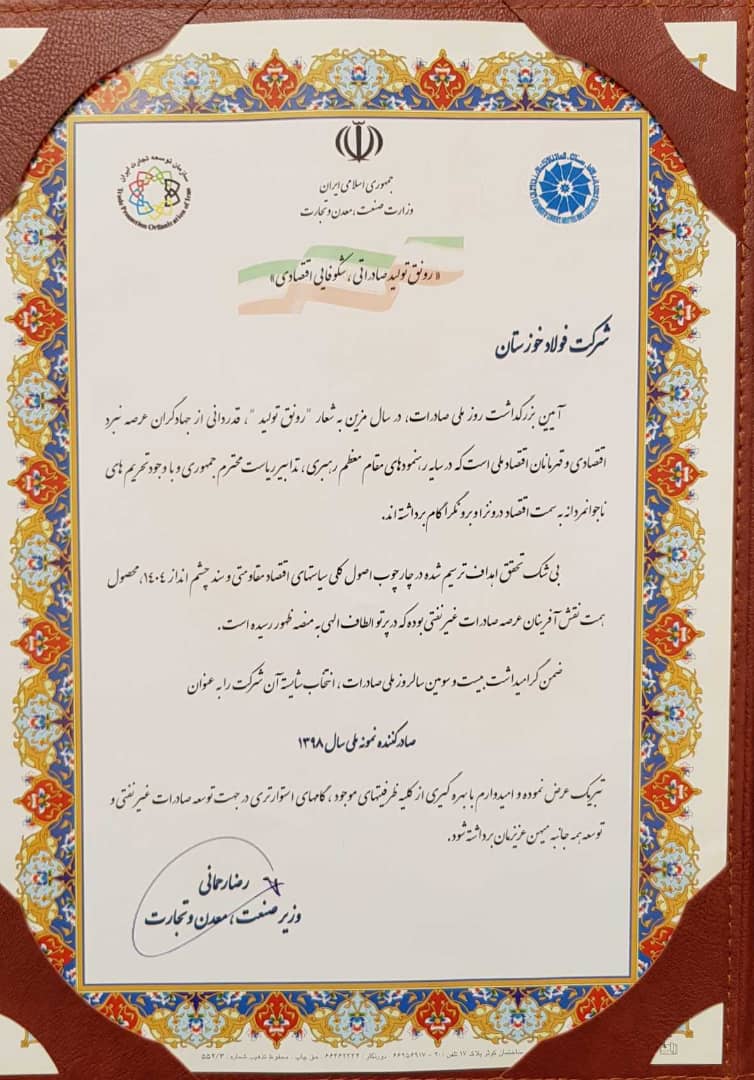 جمهوری اسلامی ایران
وزارت صنعت، معدن و تجارت
سازمان توسعه تجارت ایران
Trade Promotion Organization of Iran
«رونق تولید صادراتی، شکوفایی اقتصادی»
شرکت فولاد خوزستان
آیین بزرگداشت روز ملی صادرات، در سال مزین به شعار "رونق تولید"، قدردانی از جهادگران عرصه نبرد
اقتصادی و قهرمانان اقتصاد ملی است که در سایه رهنمودهای مقام معظم رهبری، تدابیر ریاست محترم جمهوری و با وجود تحریم های
ناجوانمردانه به سمت اقتصاد درونزا و برونگرا گام برداشته اند.
بی شک تحقق اهداف ترسیم شده در چارچوب اصول کلی سیاستهای اقتصاد مقاومتی و سند چشم انداز ۱۴۰۴، محصول
همت نقش آفرینان عرصه صادرات غیرنفتی بوده که در پرتو الطاف الهی به منصه ظهور رسیده است.
ضمن گرامیداشت بیست و سومین سالروز ملی صادرات، انتخاب شایسته آن شرکت را به عنوان
صادرکننده نمونه ملی سال ۱۳۹۸
تبریک عرض نموده و امیدوارم با بهره گیری از کلیه ظرفیتهای موجود، گامهای استوارتری در جهت توسعه صادرات غیرنفتی و
توسعه همه جانبه میهن عزیزمان برداشته شود.
رضا رحمانی
وزیر صنعت، معدن و تجارت
ساختمان کوثر پلاک ۱۷ تلفن: ۲۰ - ۶۶۹۵۶۹۱۷ دورنگار: ۶۶۲۶۲۲۲۴ حق چاپ محفوظ تذهیب شماره: ۵۵۲/۳